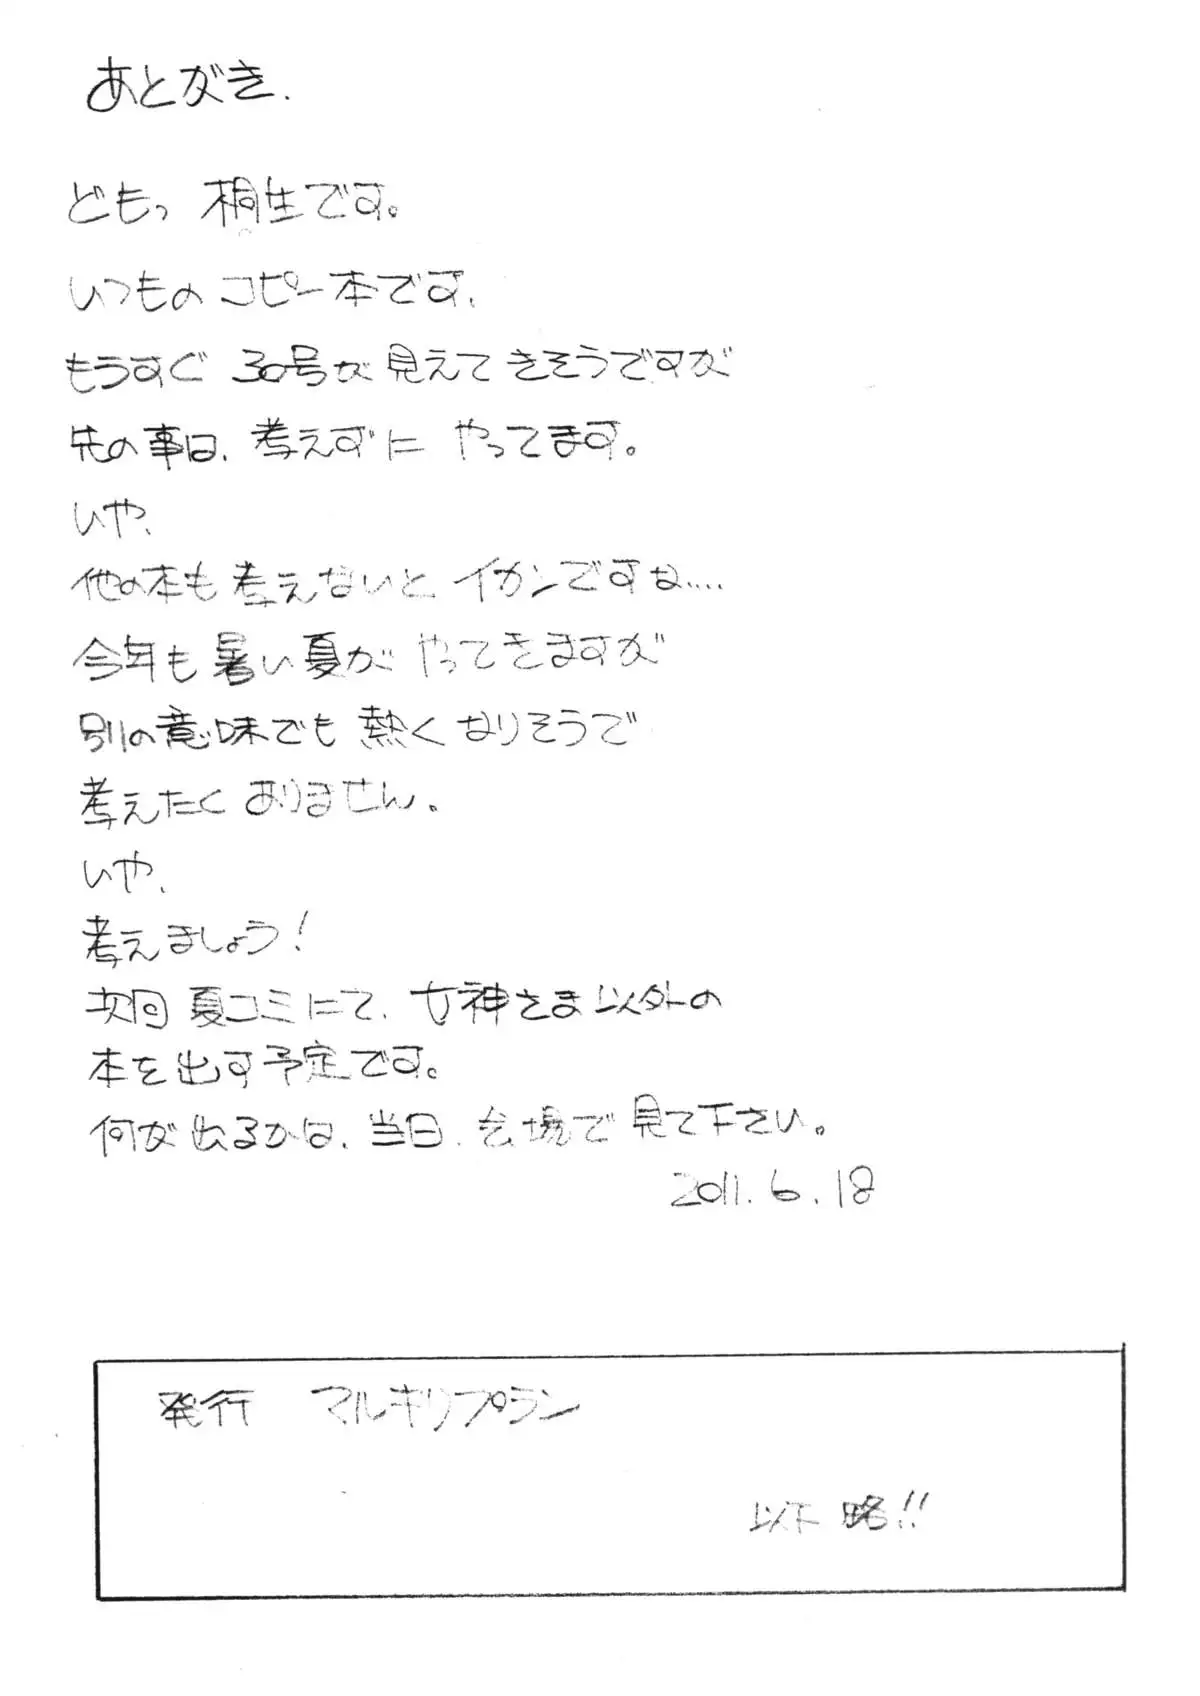 あとがき.
どもっ 桐生です。
いつものコピー本です.
もうすぐ 30号が見えてきそうですが
先の事は、考えずに やってます。
いや、
他の本も考えないと イカンですな....
今年も暑い夏が やってきますが
別の意味でも熱くなりそうで
考えたくありません。
いや、
考えましょう!
次回 夏コミにて、女神さま以外の
本を出す予定です。
何が出るかは、当日、会場で見て下さい。
2011.6.18
発行 マルキリプラン
以下略!!